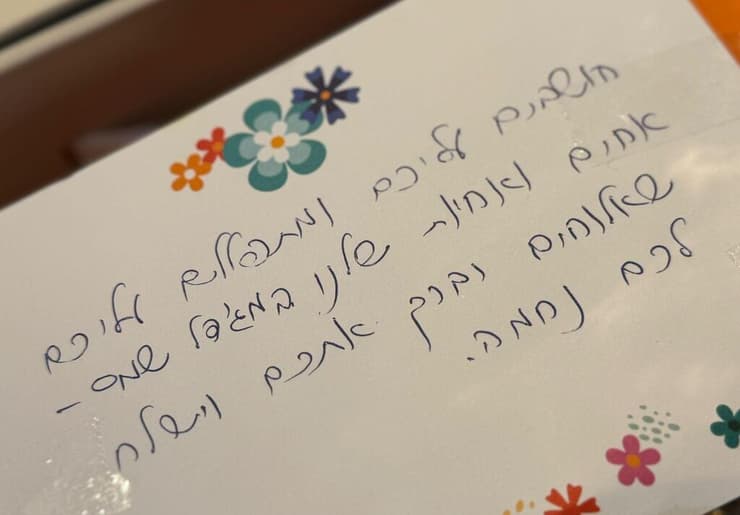 חושבים עליכם ומתפללים עליכם
אחים ואחיות שלנו במג'דל שמס -
שאלוהים יברך אתכם וישלח
לכם נחמה.